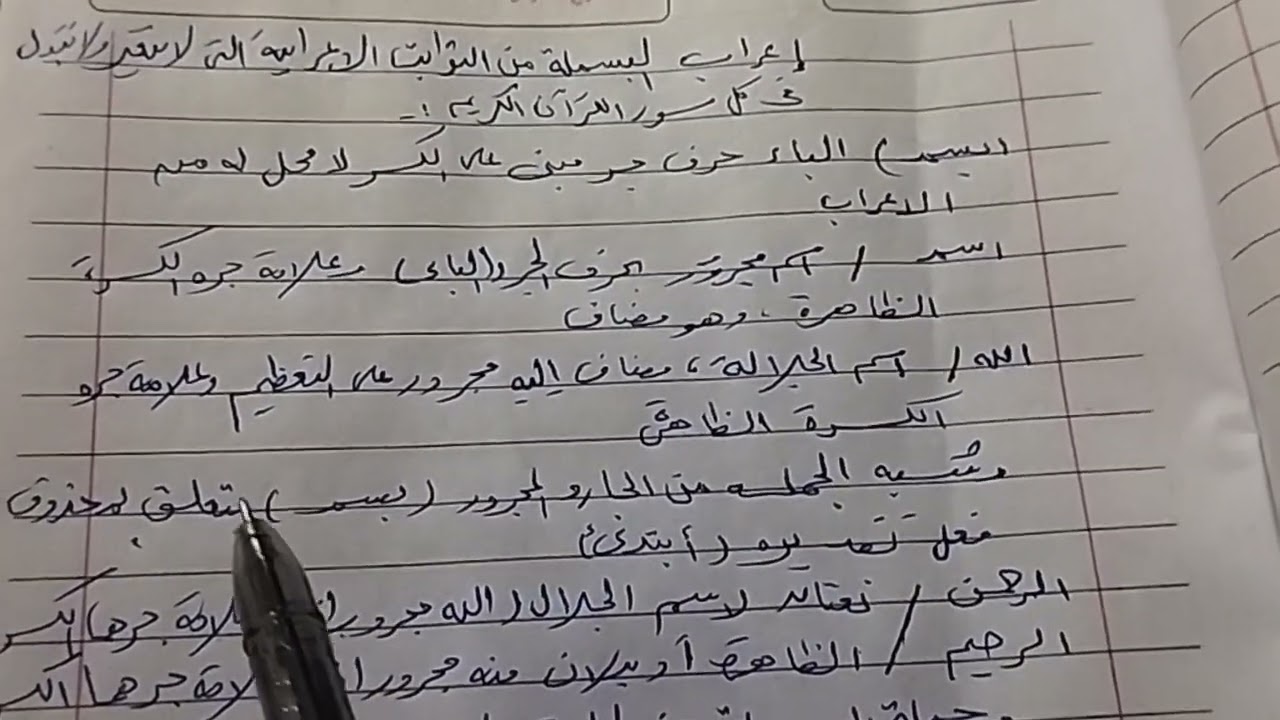 إعراب البسملة من الثوابت الاعرابية التي لا تتغير ولا تتبدل
في كل سور القرآن الكريم :-
(بسم) الباء حرف جر مبني على الكسر لا محل له من
الاعراب
اسم / اسم مجرور بحرف الجر (الباء) وعلامة جره الكسرة
الظاهرة، وهو مضاف
الله / اسم الجلالة، مضاف اليه مجرور على التعظيم وعلامة جره
الكسرة الظاهرة
وشبه الجملة من الجار والمجرور (بسم) يتعلق بمحذوف
فعل تقديره (أبتدئ)
الرحمن / نعتان لاسم الجلال (الله مجروران علامة جرها الكسر
الرحيم / الظاهرة أو بدلان منه مجروران علامة جرها الكسر